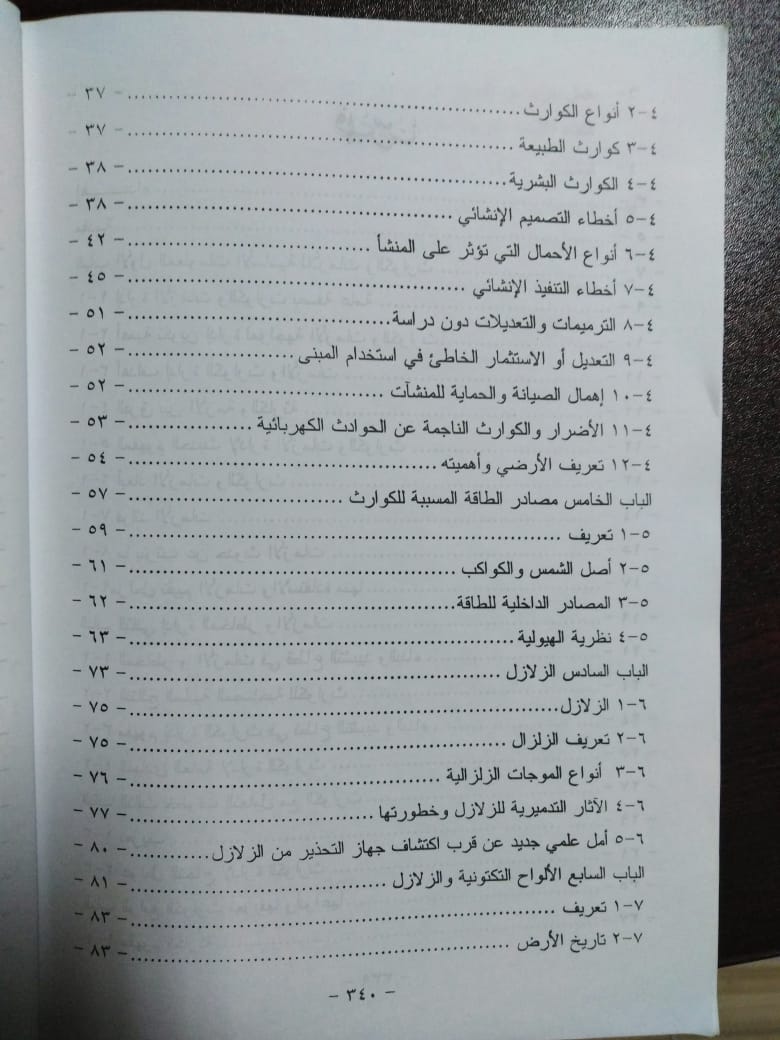 ٤-٢ أنواع الكوارث.................................................- ٣٧ -
٤-٣ كوارث الطبيعة.................................................- ٣٧ -
٤-٤ الكوارث البشرية.................................................- ٣٨ -
٤-٥ أخطاء التصميم الإنشائي.................................................- ٣٨ -
٤-٦ أنواع الأحمال التي تؤثر على المنشأ.................................- ٤٢ -
٤-٧ أخطاء التنفيذ الإنشائي.................................................- ٤٥ -
٤-٨ الترميمات والتعديلات دون دراسة.................................- ٥١ -
٤-٩ التعديل أو الاستثمار الخاطئ في استخدام المبنى.......................- ٥٢ -
٤-١٠ إهمال الصيانة والحماية للمنشآت.................................- ٥٢ -
٤-١١ الأضرار والكوارث الناجمة عن الحوادث الكهربائية.................- ٥٣ -
٤-١٢ تعريف الأرضي وأهميته.................................................- ٥٤ -
الباب الخامس مصادر الطاقة المسببة للكوارث.............................- ٥٧ -
٥-١ تعريف.................................................- ٥٩ -
٥-٢ أصل الشمس والكواكب.................................................- ٦١ -
٥-٣ المصادر الداخلية للطاقة.................................................- ٦٢ -
٥-٤ نظرية الهيولية.................................................- ٦٣ -
الباب السادس الزلازل.................................................- ٧٣ -
٦-١ الزلازل.................................................- ٧٥ -
٦-٢ تعريف الزلزال.................................................- ٧٥ -
٦-٣ أنواع الموجات الزلزالية.................................................- ٧٦ -
٦-٤ الآثار التدميرية للزلازل وخطورتها.................................- ٧٧ -
٦-٥ أمل علمي جديد عن قرب اكتشاف جهاز التحذير من الزلازل.............- ٨٠ -
الباب السابع الألواح التكتونية والزلازل.................................- ٨١ -
٧-١ تعريف.................................................- ٨٣ -
٧-٢ تاريخ الأرض.................................................- ٨٣ -
- ٣٤٠ -